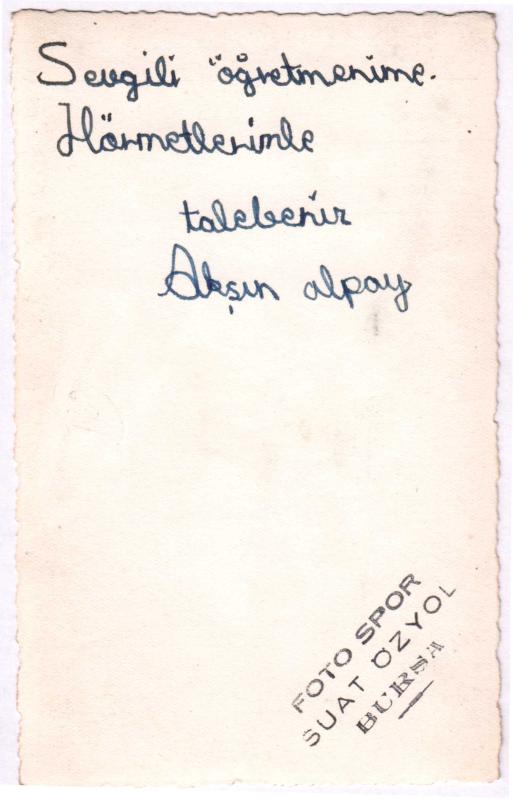 Sevgili öğretmenime.
Hörmetlerimle
talebeniz
Akşın alpay
FOTO SPOR
SUAT ÖZYOL
BURSA